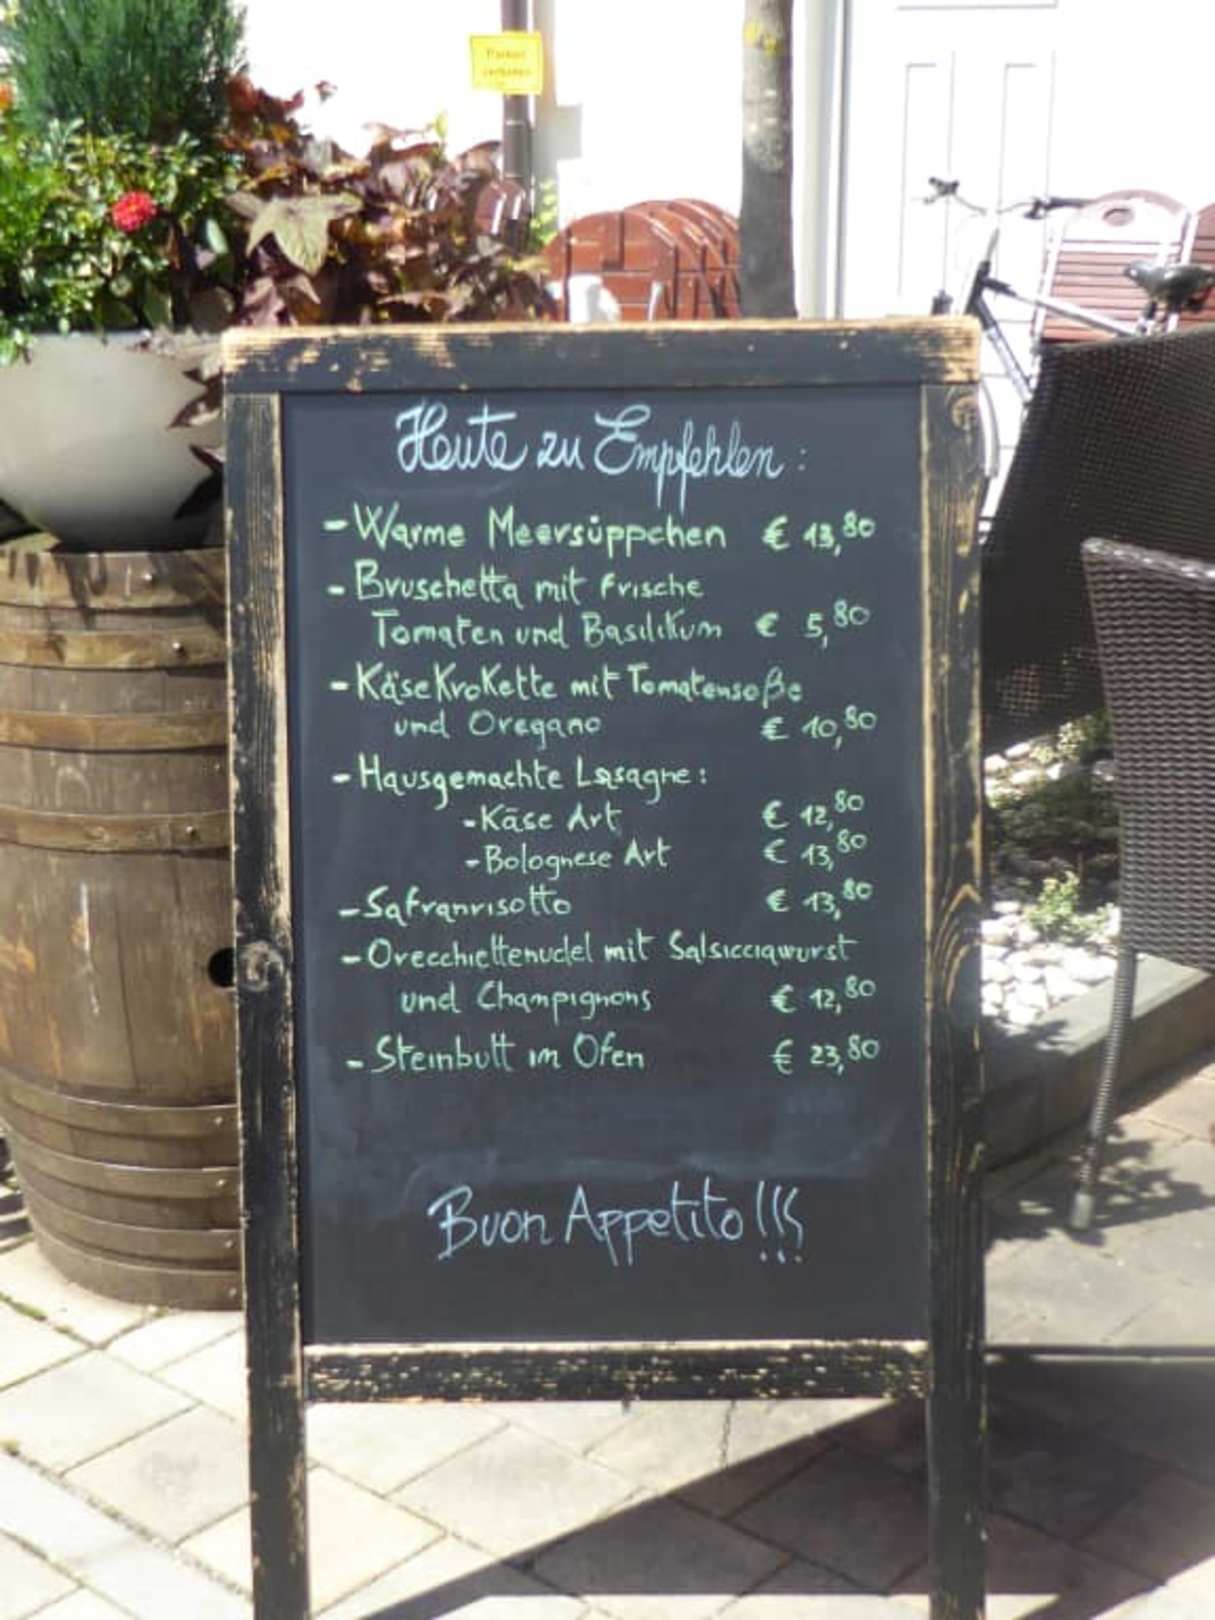 Heute zu Empfehlen:
- Warme Meersüppchen € 13,80
- Bruschetta mit frische
Tomaten und Basilikum € 5,80
- KäseKroKette mit Tomatensoße
und Oregano € 10,80
- Hausgemachte Lasagne:
- Käse Art € 12,80
- Bolognese Art € 13,80
- Safranrisotto € 13,80
- Orecchiettenudel mit Salsicciawurst
und Champignons € 12,80
- Steinbutt im Ofen € 23,80
Buon Appetito!!!